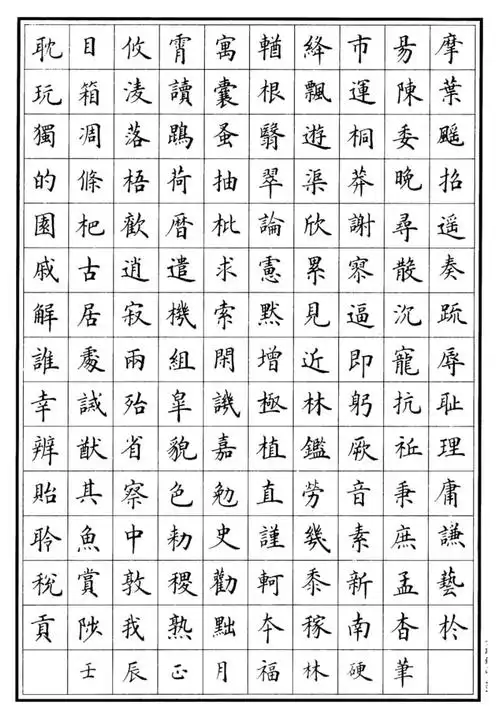 耽目攸霄寓輶絳市易摩
玩箱凌讀囊根飄運陳葉
獨凋落鵾蚤翳遊桐委飖
的條梧荷抽翠渠莽晚招
園杷歡曆枇論欣謝尋遥
戚古逍遣求憲累寮散奏
解居寂機索默見逼沉疏
誰處兩組閑增近即寵辱
幸誡殆皐譏極林躬抗耻
辨猷省貌嘉植鑑厥祉理
貽其察色勉直勞音秉庸
聆魚中勅史謹幾素庶謙
稅賞敦稷勸軻黍新孟藝
貢陟我熟黜本稼南杳於
壬辰正月福林硬筆